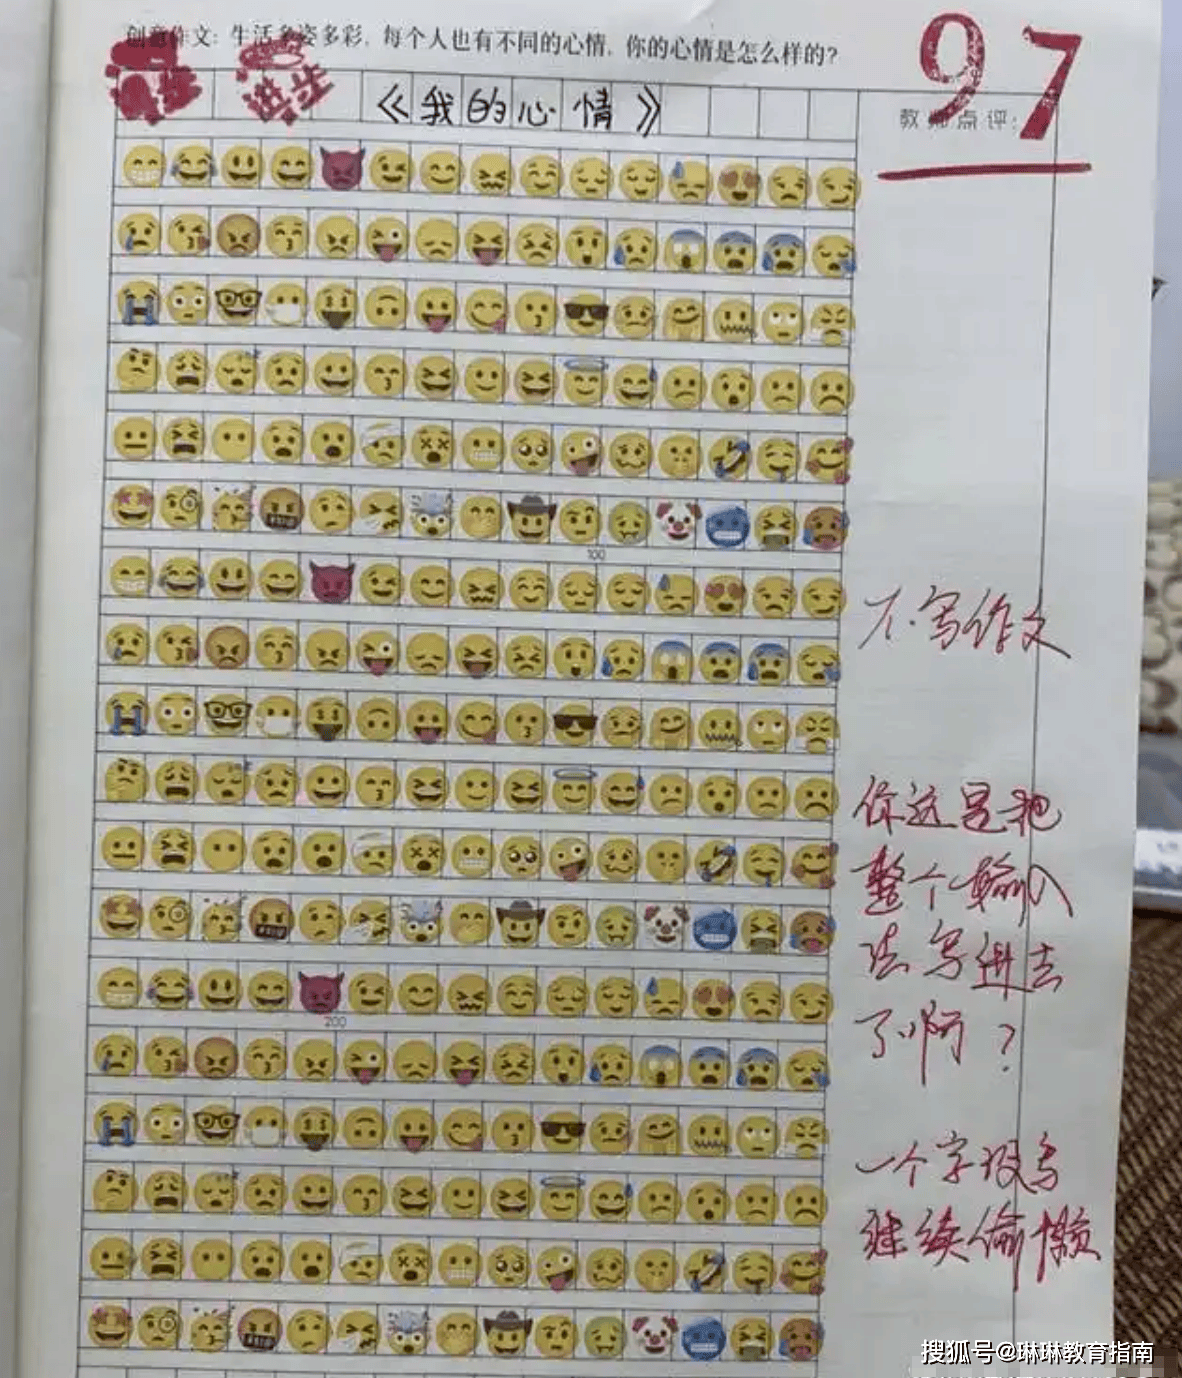 创意作文：生活多姿多彩，每个人也有不同的心情，你的心情是怎么样的？
97
《我的心情》
教师点评：
100
不写作文
你这是把
整个输入
法写进去
了啊？
200
一个字没写
继续偷懒
搜狐号@琳琳教育指南